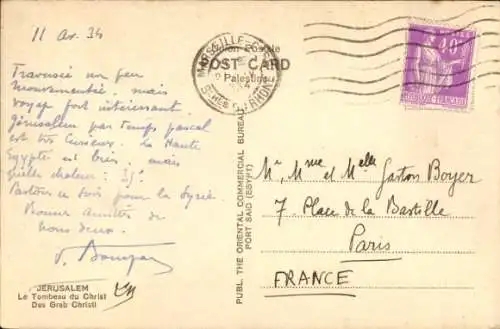 11 av. 34
Traversée un peu
mouvementée, mais
voyage fort intéressant.
Jérusalem par temps pascal
est très curieux. La Haute
Egypte est très, mais
quelle chaleur : 35°.
Partons ce soir pour la Syrie.
Bonnes amitiés de
nous deux.
JERUSALEM
Le Tombeau du Christ
Des Grab Christi
PUBL. THE ORIENTAL COMMERCIAL BUREAU
PORT SAID (EGYPT)
Union Postale
POST CARD
Palestine
MARSEILLE-
RHONE
40c
POSTES
REPUBLIQUE FRANÇAISE
Mr, Mme et Melle Gaston Boyer
7 Place de la Bastille
Paris
FRANCE